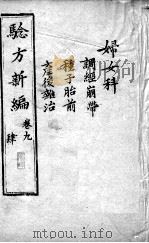 婦女科
調經崩帶
種子胎前
產後雜治
騐方新編 卷九 肆